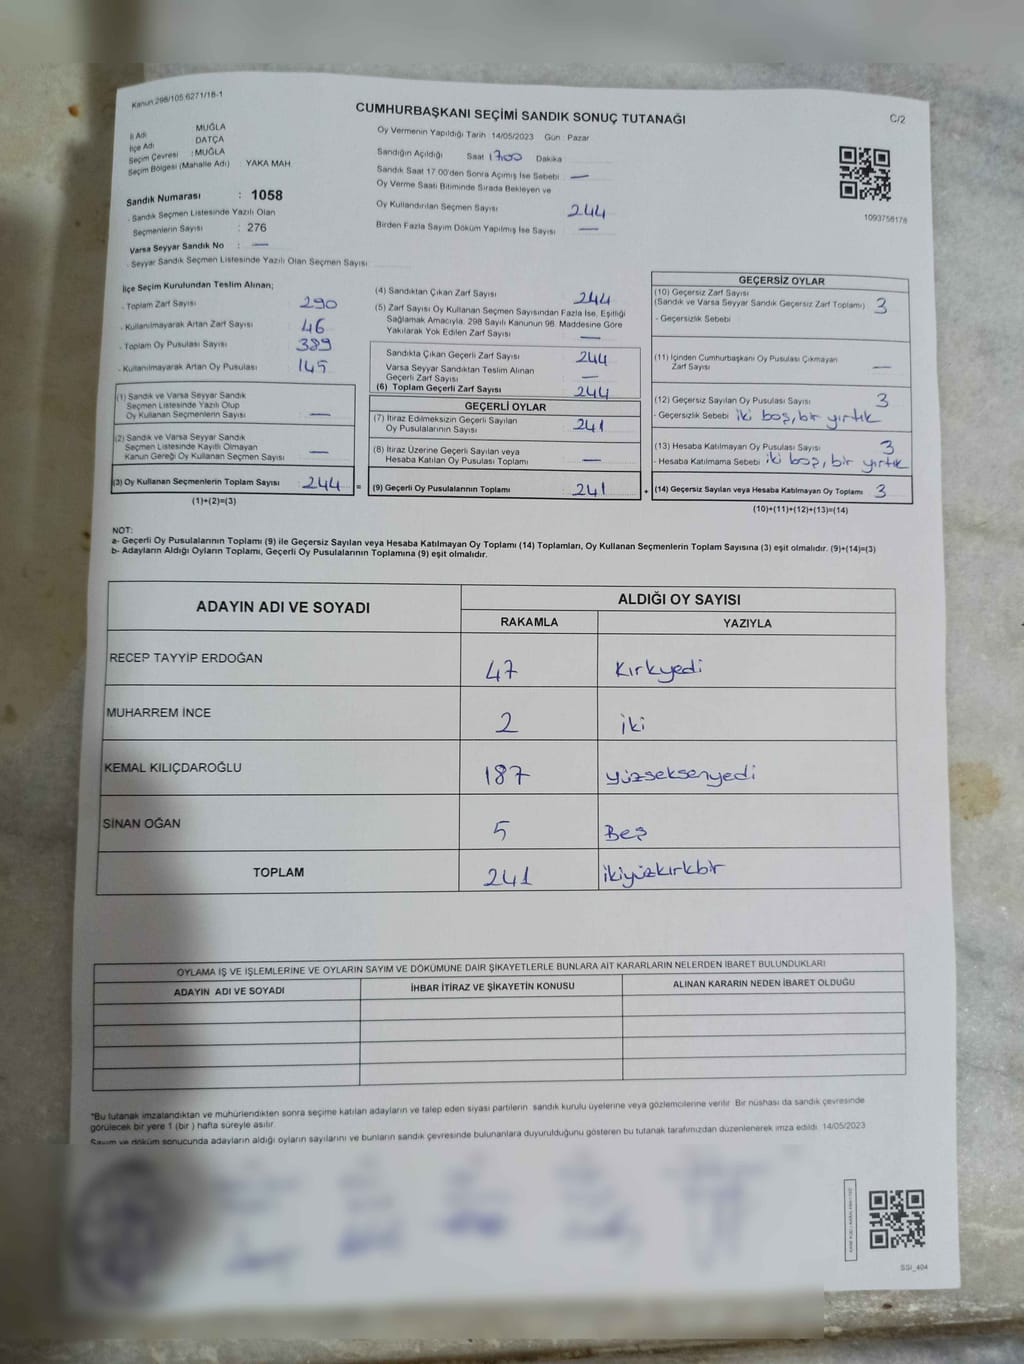 Kanun 298/105 6271/18-1
CUMHURBAŞKANI SEÇİMİ SANDIK SONUÇ TUTANAĞI
C/2
İl Adı MUĞLA
İlçe Adı DATÇA
Seçim Çevresi : MUĞLA
Seçim Bölgesi (Mahalle Adı) : YAKA MAH.
Sandık Numarası : 1058
. Sandık Seçmen Listesinde Yazılı Olan
Seçmenlerin Sayısı : 276
Varsa Seyyar Sandık No : —
. Seyyar Sandık Seçmen Listesinde Yazılı Olan Seçmen Sayısı
Oy Vermenin Yapıldığı Tarih : 14/05/2023 Gün : Pazar
Sandığın Açıldığı Saat 17:00 Dakika
Sandık Saat 17.00'den Sonra Açımış İse Sebebi : —
Oy Verme Saati Bitiminde Sırada Bekleyen ve
Oy Kullandırılan Seçmen Sayısı 244
Birden Fazla Sayım Döküm Yapılmış İse Sayısı —
1093758178
İlçe Seçim Kurulundan Teslim Alınan;
. Toplam Zarf Sayısı 290
. Kullanılmayarak Artan Zarf Sayısı 46
. Toplam Oy Pusulası Sayısı 389
. Kullanılmayarak Artan Oy Pusulası 145
(1) Sandık ve Varsa Seyyar Sandık
Seçmen Listesinde Yazılı Olup
Oy Kullanan Seçmenlerin Sayısı —
(2) Sandık ve Varsa Seyyar Sandık
Seçmen Listesinde Kayıtlı Olmayan
Kanun Gereği Oy Kullanan Seçmen Sayısı —
(3) Oy Kullanan Seçmenlerin Toplam Sayısı 244 =
(1)+(2)=(3)
(4) Sandıktan Çıkan Zarf Sayısı 244
(5) Zarf Sayısı Oy Kullanan Seçmen Sayısından Fazla İse, Eşitliği
Sağlamak Amacıyla, 298 Sayılı Kanunun 98. Maddesine Göre
Yakılarak Yok Edilen Zarf Sayısı —
Sandıkta Çıkan Geçerli Zarf Sayısı 244
Varsa Seyyar Sandıktan Teslim Alınan
Geçerli Zarf Sayısı —
(6) Toplam Geçerli Zarf Sayısı 244
GEÇERLİ OYLAR
(7) İtiraz Edilmeksizin Geçerli Sayılan
Oy Pusulalarının Sayısı 241
(8) İtiraz Üzerine Geçerli Sayılan veya
Hesaba Katılan Oy Pusulası Toplamı —
(9) Geçerli Oy Pusulalarının Toplamı 241 +
GEÇERSİZ OYLAR
(10) Geçersiz Zarf Sayısı
(Sandık ve Varsa Seyyar Sandık Geçersiz Zarf Toplamı) 3
- Geçersizlik Sebebi
(11) İçinden Cumhurbaşkanı Oy Pusulası Çıkmayan
Zarf Sayısı —
(12) Geçersiz Sayılan Oy Pusulası Sayısı 3
- Geçersizlik Sebebi iki boş, bir yırtık
(13) Hesaba Katılmayan Oy Pusulası Sayısı 3
- Hesaba Katılmama Sebebi iki boş, bir yırtık
(14) Geçersiz Sayılan veya Hesaba Katılmayan Oy Toplamı 3
(10)+(11)+(12)+(13)=(14)
NOT:
a- Geçerli Oy Pusulalarının Toplamı (9) ile Geçersiz Sayılan veya Hesaba Katılmayan Oy Toplamı (14) Toplamları, Oy Kullanan Seçmenlerin Toplam Sayısına (3) eşit olmalıdır. (9)+(14)=(3)
b- Adayların Aldığı Oyların Toplamı, Geçerli Oy Pusulalarının Toplamına (9) eşit olmalıdır.
ADAYIN ADI VE SOYADI ALDIĞI OY SAYISI
RAKAMLA YAZIYLA
RECEP TAYYİP ERDOĞAN 47 Kırkyedi
MUHARREM İNCE 2 iki
KEMAL KILIÇDAROĞLU 187 yüzseksenyedi
SİNAN OĞAN 5 Beş
TOPLAM 241 ikiyüzkırkbir
OYLAMA İŞ VE İŞLEMLERİNE VE OYLARIN SAYIM VE DÖKÜMÜNE DAİR ŞİKAYETLERLE BUNLARA AİT KARARLARIN NELERDEN İBARET BULUNDUKLARI
ADAYIN ADI VE SOYADI İHBAR İTİRAZ VE ŞİKAYETİN KONUSU ALINAN KARARIN NEDEN İBARET OLDUĞU
*Bu tutanak imzalandıktan ve mühürlendikten sonra seçime katılan adayların ve talep eden siyasi partilerin sandık kurulu üyelerine veya gözlemcilerine verilir. Bir nüshası da sandık çevresinde
görülecek bir yere 1 (bir) hafta süreyle asılır.
Sayım ve döküm sonucunda adayların aldığı oyların sayılarını ve bunların sandık çevresinde bulunanlara duyurulduğunu gösteren bu tutanak tarafımızdan düzenlenerek imza edildi. 14/05/2023
SSI_404